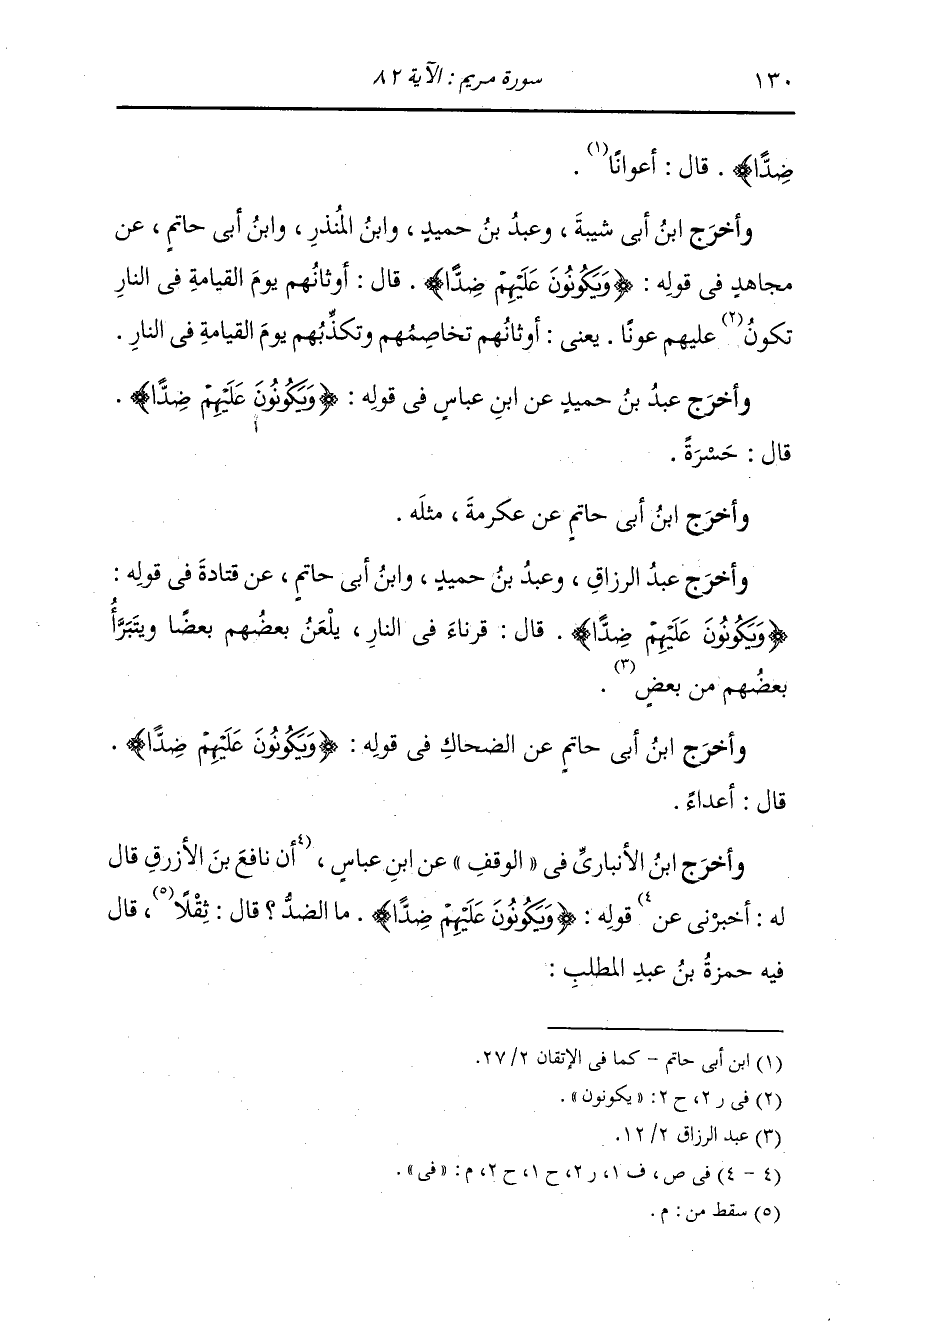 ١٣٠ سورة مريم : الآية ٨٢
ضِدًّا﴾ . قال : أعوانًا(١) .
وأخرَج ابنُ أبى شيبةَ ، وعبدُ بنُ حميدٍ ، وابنُ المُنذرِ ، وابنُ أبى حاتمٍ ، عن
مجاهدٍ فى قولِه : ﴿وَيَكُونُونَ عَلَيْهِمْ ضِدًّا﴾ . قال : أوثانُهم يومَ القيامةِ فى النارِ
تكونُ(٢) عليهم عونًا . يعنى : أوثانُهم تخاصِمُهم وتكذِّبُهم يومَ القيامةِ فى النارِ .
وأخرَج عبدُ بنُ حميدٍ عن ابنِ عباسٍ فى قولِه : ﴿وَيَكُونُونَ عَلَيْهِمْ ضِدًّا﴾ .
قال : حَسْرَةً .
وأخرَج ابنُ أبى حاتمٍ عن عكرمةَ ، مثلَه .
وأخرَج عبدُ الرزاقِ ، وعبدُ بنُ حميدٍ ، وابنُ أبى حاتمٍ ، عن قتادةَ فى قولِه :
﴿وَيَكُونُونَ عَلَيْهِمْ ضِدًّا﴾ . قال : قرناءَ فى النارِ ، يلْعَنُ بعضُهم بعضًا ويتَبَرَّأُ
بعضُهم من بعضٍ(٣) .
وأخرَج ابنُ أبى حاتمٍ عن الضحاكِ فى قولِه : ﴿وَيَكُونُونَ عَلَيْهِمْ ضِدًّا﴾ .
قال : أعداءً .
وأخرَج ابنُ الأنبارىِّ فى « الوقفِ » عن ابنِ عباسٍ ، (٤أن نافعَ بنَ الأزرقِ قال
له : أخبرْنى عن٤) قولِه : ﴿وَيَكُونُونَ عَلَيْهِمْ ضِدًّا﴾ . ما الضدُّ ؟ قال : ثِقْلًا(٥) ، قال
فيه حمزةُ بنُ عبدِ المطلبِ :
(١) ابن أبى حاتم – كما فى الإتقان ٢/ ٢٧.
(٢) فى ر ٢، ح ٢: « يكونون » .
(٣) عبد الرزاق ٢/ ١٢.
(٤ – ٤) فى ص ، ف ١، ر ٢، ح ١، ح ٢، م : « فى » .
(٥) سقط من : م .